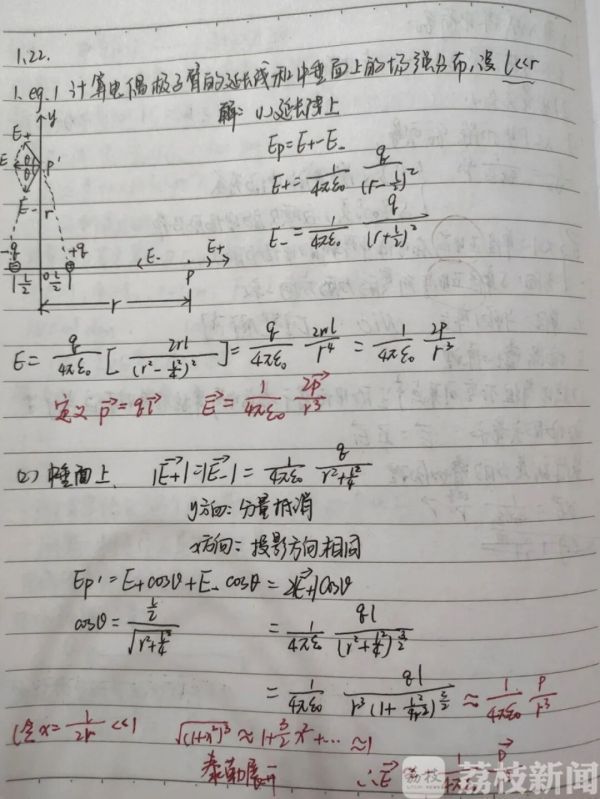 1.22.
1. eg.1 计算电偶极子臂的延长线和中垂面上的场强分布,设 l<<r
解: (1)延长线上
y
E+
E
P'
E-
r
Ep=E+-E-
E+= 1/4πε₀ q/(r-l/2)²
E-= 1/4πε₀ q/(r+l/2)²
-q +q E- E+
l/2 0 l/2 P
r
E= q/4πε₀ [2rl/(r²-l²/4)²]= q/4πε₀ 2rl/r⁴ = 1/4πε₀ 2p/r³
定义 p⃗=ql⃗ E⃗= 1/4πε₀ 2p⃗/r³
(2) 中垂面上, |E⃗+|=|E⃗-|= 1/4πε₀ q/(r²+l²/4)
y方向: 分量抵消
x方向: 投影方向相同
Ep'=E+cosθ+E-cosθ=2|E⃗+|cosθ
cosθ= (l/2)/√(r²+l²/4) = 1/4πε₀ ql/(r²+l²/4)^(3/2)
= 1/4πε₀ ql/r³(1+l²/4r²)^(3/2) ≈ 1/4πε₀ p/r³
(令x= l/2r <<1 √(1+x²)³ ≈1+3/2 x²+… ≈1
泰勒展开 ∴E⃗ 1/4πε₀ p⃗
荔枝 荔枝新闻